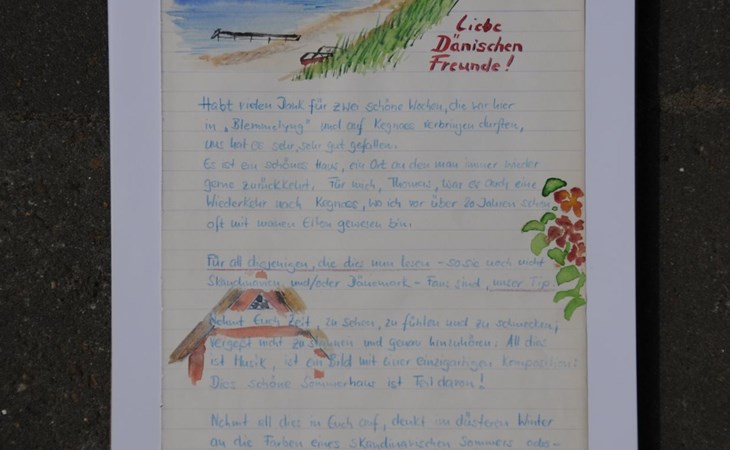 Liebe
Dänischen
Freunde!
Habt vielen Dank für zwei schöne Wochen, die wir hier
in "Blommelyng" und auf Kegnaes verbringen durften,
uns hat es sehr, sehr gut gefallen.
Es ist ein schönes Haus, ein Ort an den man immer wieder
gerne zurückkehrt. Für mich, Thomas, war es auch eine
Wiederkehr nach Kegnaes, wo ich vor über 20 Jahren schon
oft mit meinen Eltern gewesen bin.
Für all diejenigen, die dies nun lesen - so sie noch nicht
Skandinavien und/oder Dänemark - Fans sind, unser Tip:
Nehmt Euch Zeit, zu sehen, zu fühlen und zu schmecken,
vergeßt nicht zu staunen und genau hinzuhören. All dies
ist Musik, ist ein Bild mit einer einzigartigen Komposition:
Dies schöne Sommerhaus ist Teil davon!
Nehmt all dies in Euch auf, denkt im düsteren Winter
an die Farben eines skandinavischen Sommers